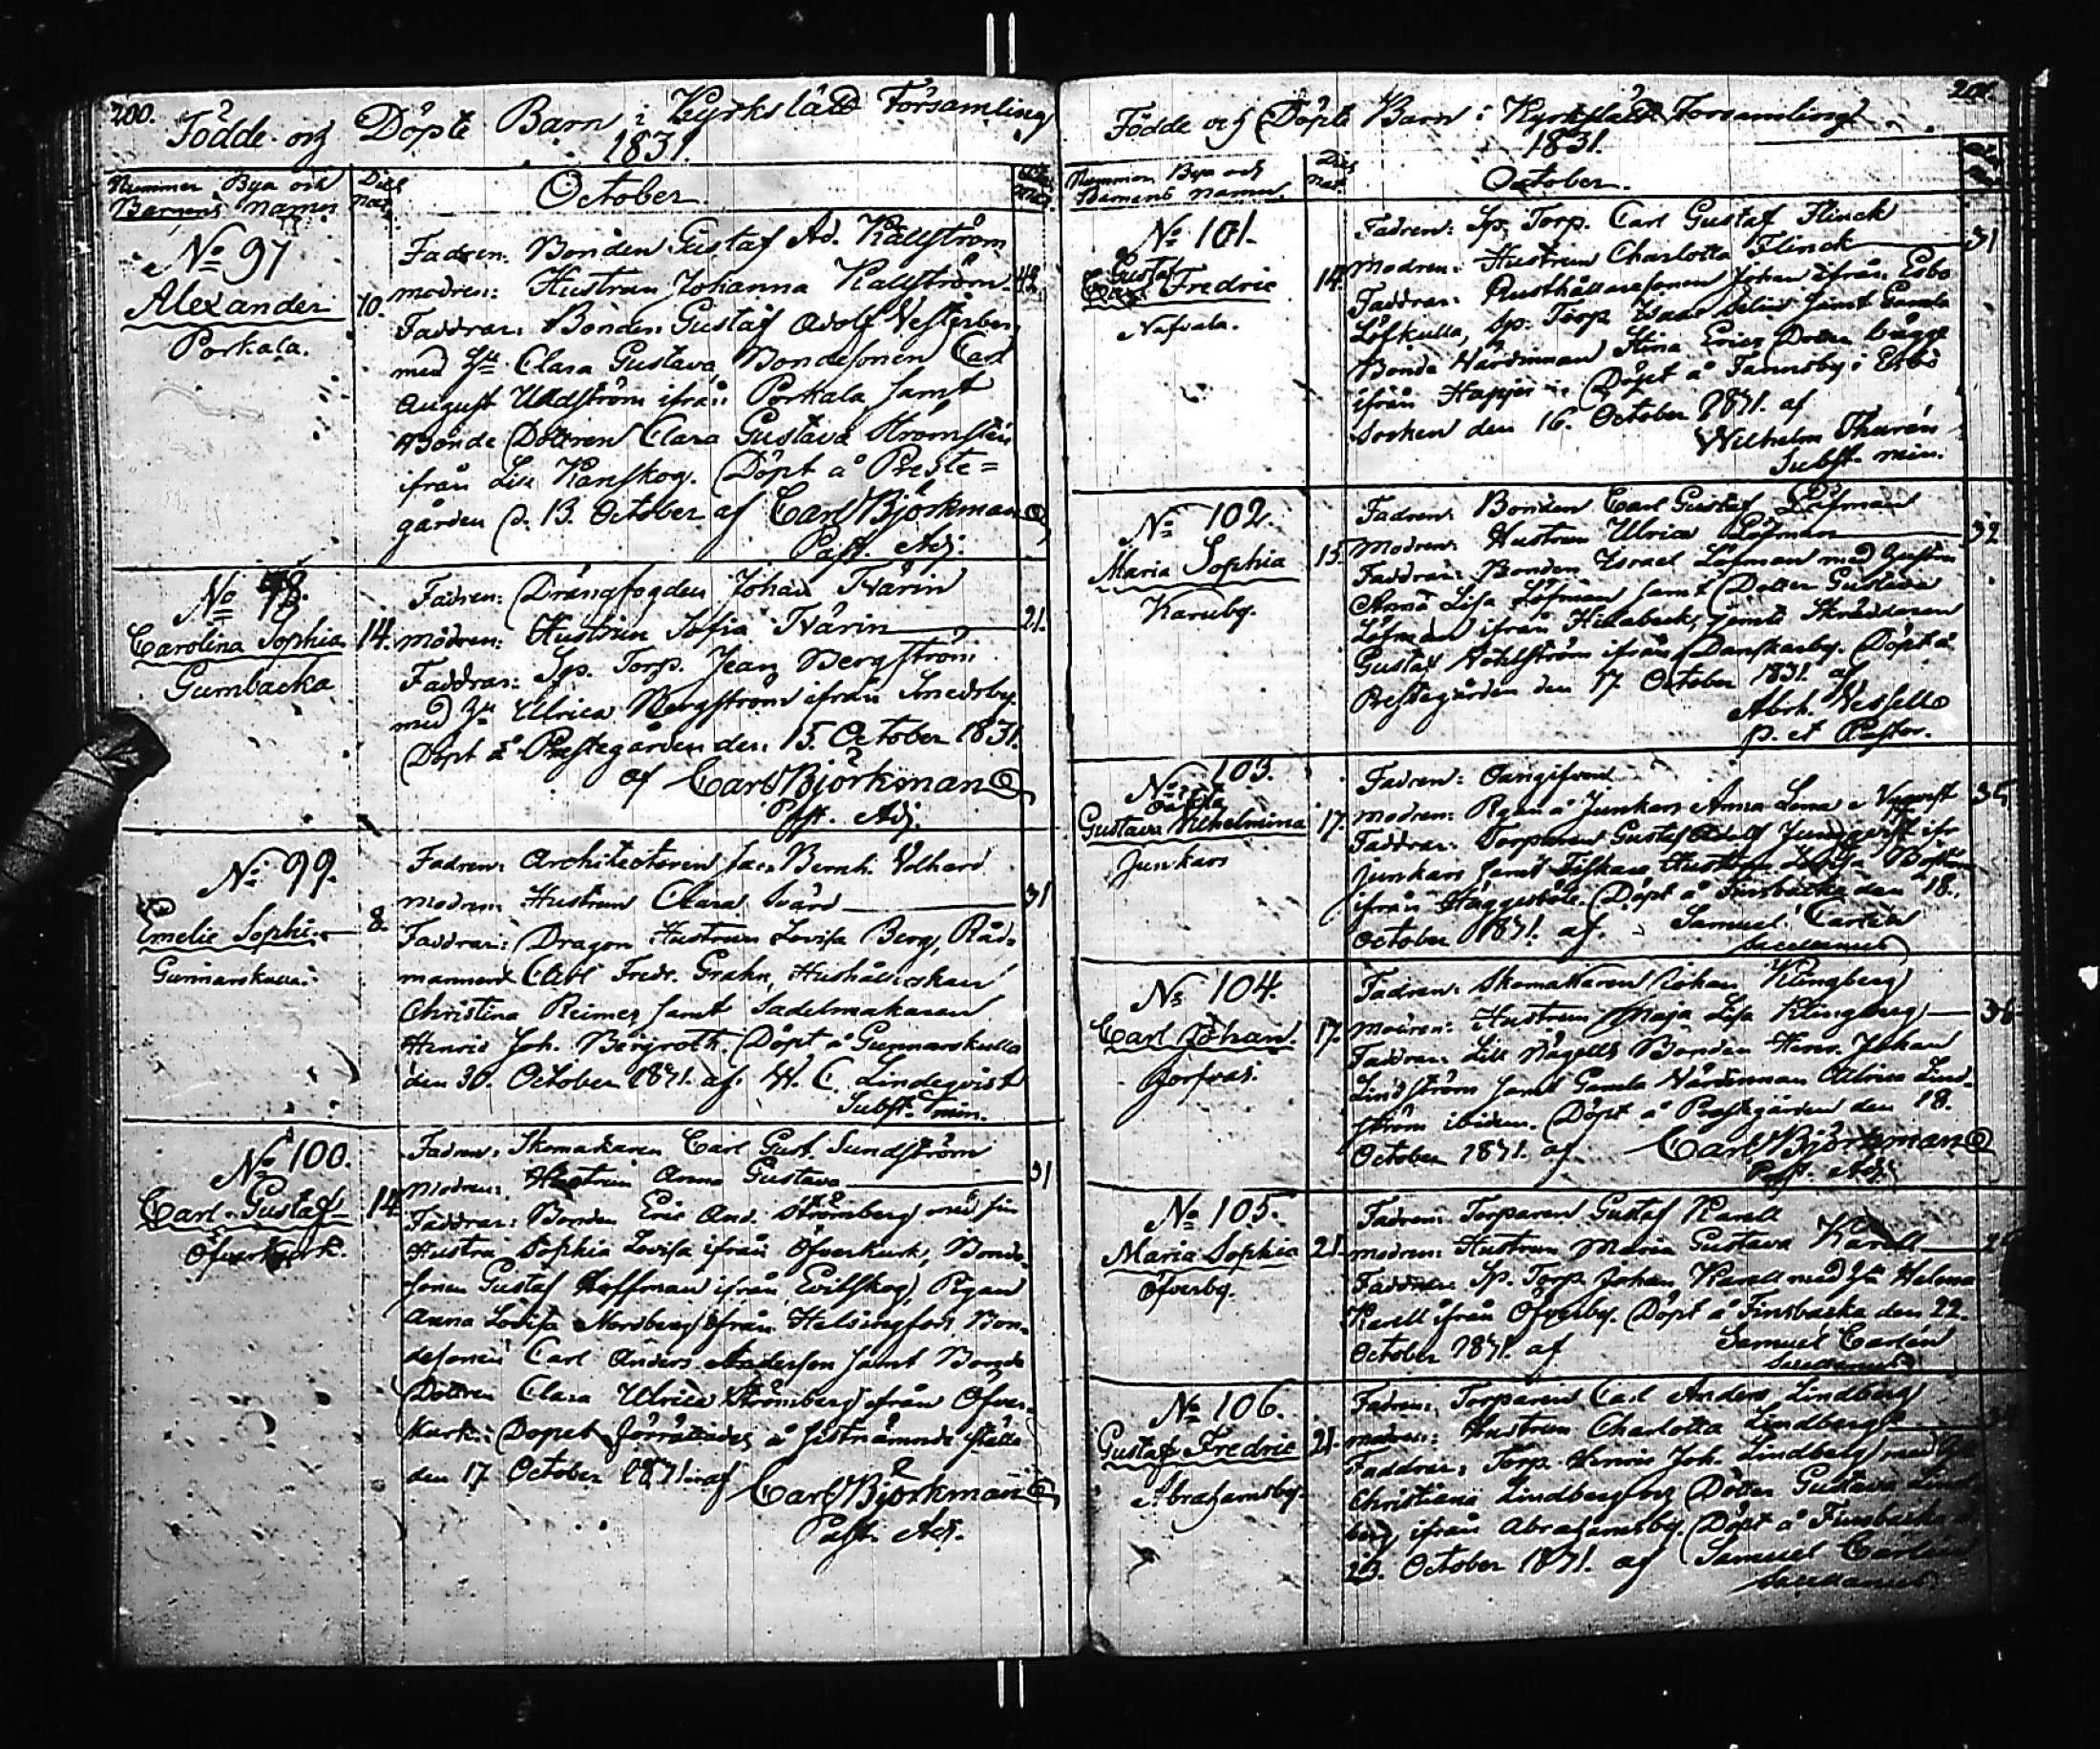 200.
Födde och Döpte Barn i Kyrkslätt Församling
1831.
Nummer Bya och
Barnens Namn
Dies
Nat.
October.
No 97
Alexander
Porkala.
10.
Fadren: Bonden Gustaf Ad. Källström
Modren: Hustrun Johanna Källström 42
Faddrar: Bonden Gustaf Adolf Westerberg
med Hu Clara Gustava, Bondesonen Carl
August Uddström ifrån Porkala samt
Bonde Dottren Clara Gustava Strömsten
ifrån Lill Kanskog. Döpt å Preste=
gården d. 13. October af Carl Björkman
Past. Adj.
No 98.
Carolina Sophia
Gumbacka
14.
Fadren: Drängfogden Johan Tvärin
Modren: Hustrun Sofia Tvärin 21.
Faddrar: Sp. Torp. Jean Bergström
med Hu Ulrica Bergström ifrån Smedsby.
Döpt å Prestegården den 15. October 1831.
af Carl Björkman
Past. Adj.
No 99.
Emelie Sophia
Gunnarskulla
8.
Fadren: Architectoren Jac. Bernh. Volhard
Modren: Hustrun Clara Svärd 31
Faddrar: Dragon Hustrun Lovisa Berg, Råd-
mannen Carl Fredr. Grahn, Hushållerskan
Christina Reimer samt Sadelmakaren
Henric Joh. Bergroth. Döpt å Gunnarskulla
den 30. October 1831. af W. C. Lindeqvist
Subst. min.
No 100.
Carl Gustaf
Öfverkurk.
14
Fadren: Skomakaren Carl Gust. Sundström
Modren: Hustrun Anna Gustava 31
Faddrar: Bonden Eric And. Strömberg med sin
Hustru Sophia Lovisa ifrån Öfverkurk, Bonde-
sonen Gustaf Hoffman ifrån Evitskog, Pigan
Anna Lovisa Nordberg ifrån Helsingfors, Bon-
desonen Carl Anders Anderson samt Bonde
Dottren Clara Ulrica Strömberg ifrån Öfver-
kurk. Dopet förrättades å sistnämnde ställe
den 17. October 1831. af Carl Björkman
Past. Adj.
201.
Födde och Döpte Barn i Kyrkslätt Församling
1831.
Nummer Bya och
Barnens Namn.
Dies
Nat.
October.
No 101.
Gustaf
Fredric
Nafvala.
14.
Fadren: Sp. Torp. Carl Gustaf Flinck
Modren: Hustrun Charlotta Flinck 31
Faddrar: Rusthållaresonen Johan ifrån Esbo
Löfkulla, Sp. Torp. Isaac Selin samt Gamla
Bonde Värdinnan Stina Erics Dotter bägge
ifrån Döpt å Fannsby i Esbo
Socken den 16. October 1831. af
Wilhelm Thurén
Subst. min.
No 102.
Maria Sophia
Karuby.
15.
Fadren: Bonden Carl Gustaf Löfman
Modren: Hustrun Ulrica Löfman 32
Faddrar: Bonden Israel Löfman med Hustrun
Anna Lisa Löfman samt Dotter Gustava
Löfman ifrån jemte Skräddaren
Gustaf Wohlström ifrån Danskarby. Döpt å
Prestegården den 17. October 1831. af
Abrh. Wessell
P. et Pastor.
No 103.
Gustava Wilhelmina
Junkars
17.
Fadren: Oangifven
Modren: Pigan å Junkars Anna Lena 35
Faddrar: Torparen Gustaf Adolf Junggvist ifr
Junkars samt Fiskare Hustrun Lovisa
ifrån Häggesböle. Döpt å Finsbacka den 18.
October 1831. af Samuel Carlén
Sacellanus
No 104.
Carl Johan.
Jorfvas.
17.
Fadren: Skomakaren Johan Klingberg
Modren: Hustrun Maja Lisa Klingberg 36
Faddrar: Lill Nägells Bonden Henr. Johan
Lindström samt Gamla Värdinnan Ulrica Lind-
ström ibidem. Döpt å Prestegården den 18.
October 1831. af Carl Björkman
Past. Adj.
No 105.
Maria Sophia
Öfverby.
21.
Fadren: Torparen Gustaf Karell
Modren: Hustrun Maria Gustava Karell
Faddrar: Sp. Torp. Johan Karell med Hu Helena
Karell ifrån Öfverby. Döpt å Finsbacka den 22.
October 1831. af Samuel Carlén
Sacellanus
No 106.
Gustaf Fredric
Abrahamsby.
21.
Fadren: Torparen Carl Anders Lindberg
Modren: Hustrun Charlotta Lindberg
Faddrar: Torp. Henric Joh. Lindberg med Hu
Christiana Lindberg och Dotter Gustava Lind-
berg ifrån Abrahamsby. Döpt å Finsbacka d
23. October 1831. af Samuel Carlén
Sacellanus